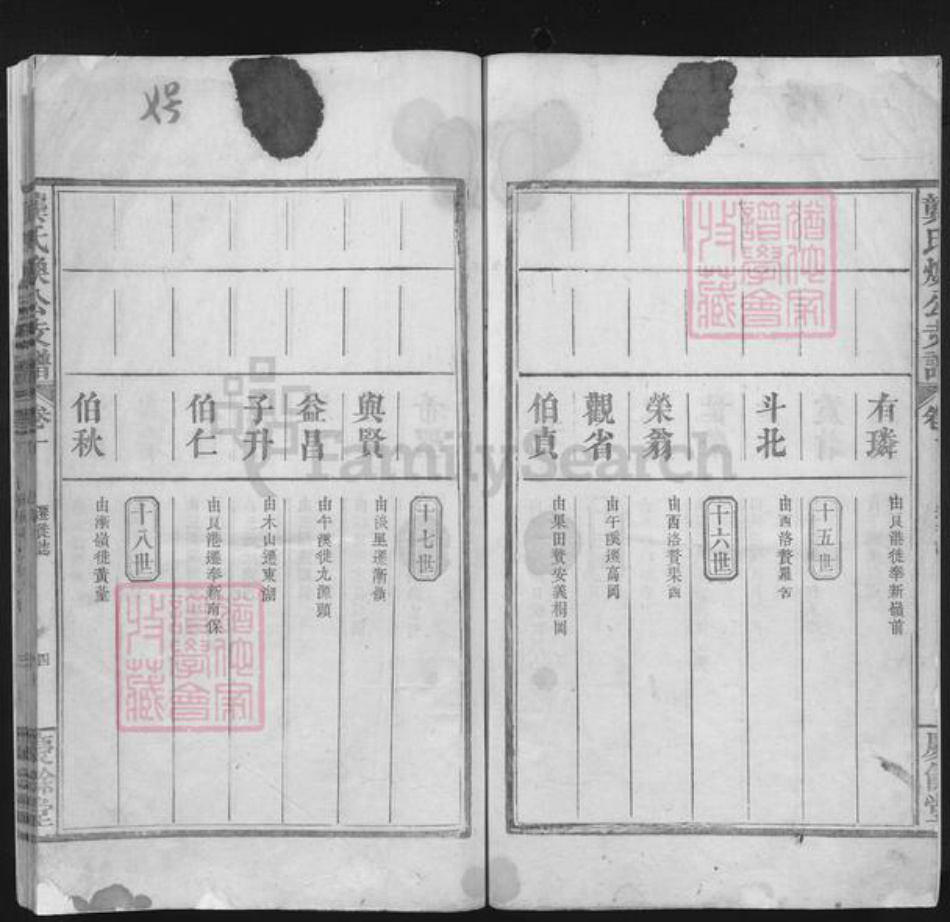 龔氏煥公支譜
卷一
慶餘堂
有璘
由艮港徙奉新嶺前
十五世
斗北
由西洛贅羅舍
十六世
榮翁
由西洛贅果西
觀省
由午溪遷高岡
伯貞
由果田贅安義桐岡
十七世
與賢
由淡里遷漸嶺
益昌
由午溪徙九源頭
子升
由木山遷東湖
伯仁
由艮港遷奉新南保
十八世
伯秋
由漸嶺徙黃荃
龔氏煥公支譜
卷一
遷徙誌
四
慶餘堂
猶他家譜學會收藏
猶他家譜學會收藏
FamilySearch